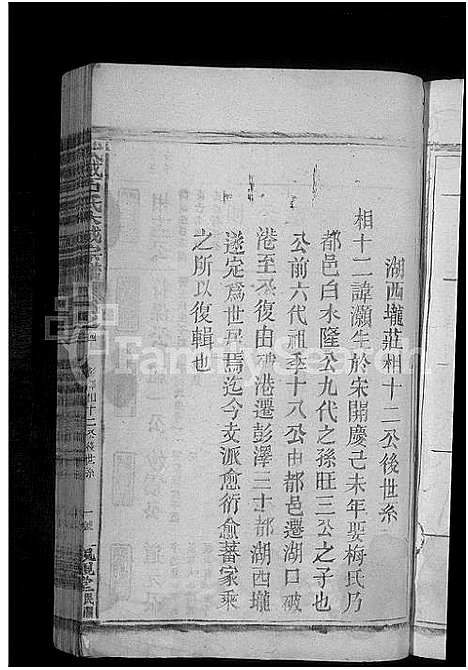 湖西壠莊相十二公後世系
相十二諱灝生於宋開慶己未年娶梅氏乃
都邑白水隆公九代之孫旺三公之子也
公前六代祖季十八公由都邑遷湖口破
港至公復由破港遷彭澤三十都湖西壠
遂定爲世居焉迄今支派愈衍愈蕃家乘
之所以復輯也
相十二公後世系
FamilySearch